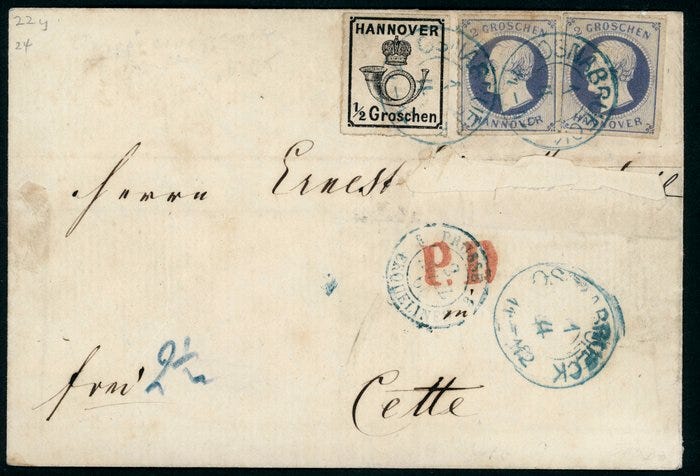 22 y
24
HANNOVER
1/2 Groschen
2 GROSCHEN
HANNOVER
2 GROSCHEN
HANNOVER
OSNABRUECK
Herrn Ernest
P.D
PRUSSE
in
OSNABRUECK
1
4
frei 2 1/2
Cette